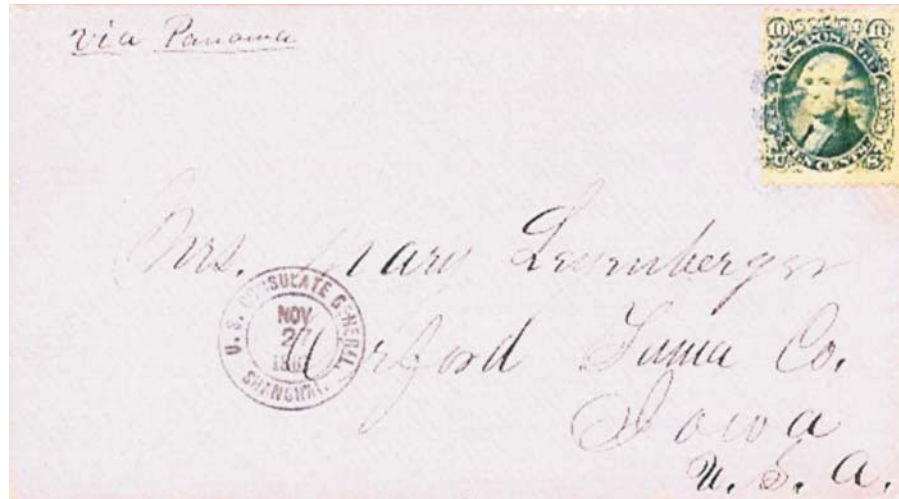 via Panama
10 10
U.S. POSTAGE
TEN CENTS
U S
Mrs. Mary
U. S. CONSULATE GENERAL.
NOV
27
SHANGHAI.
Orford Tama Co.
Iowa
U. S. A.